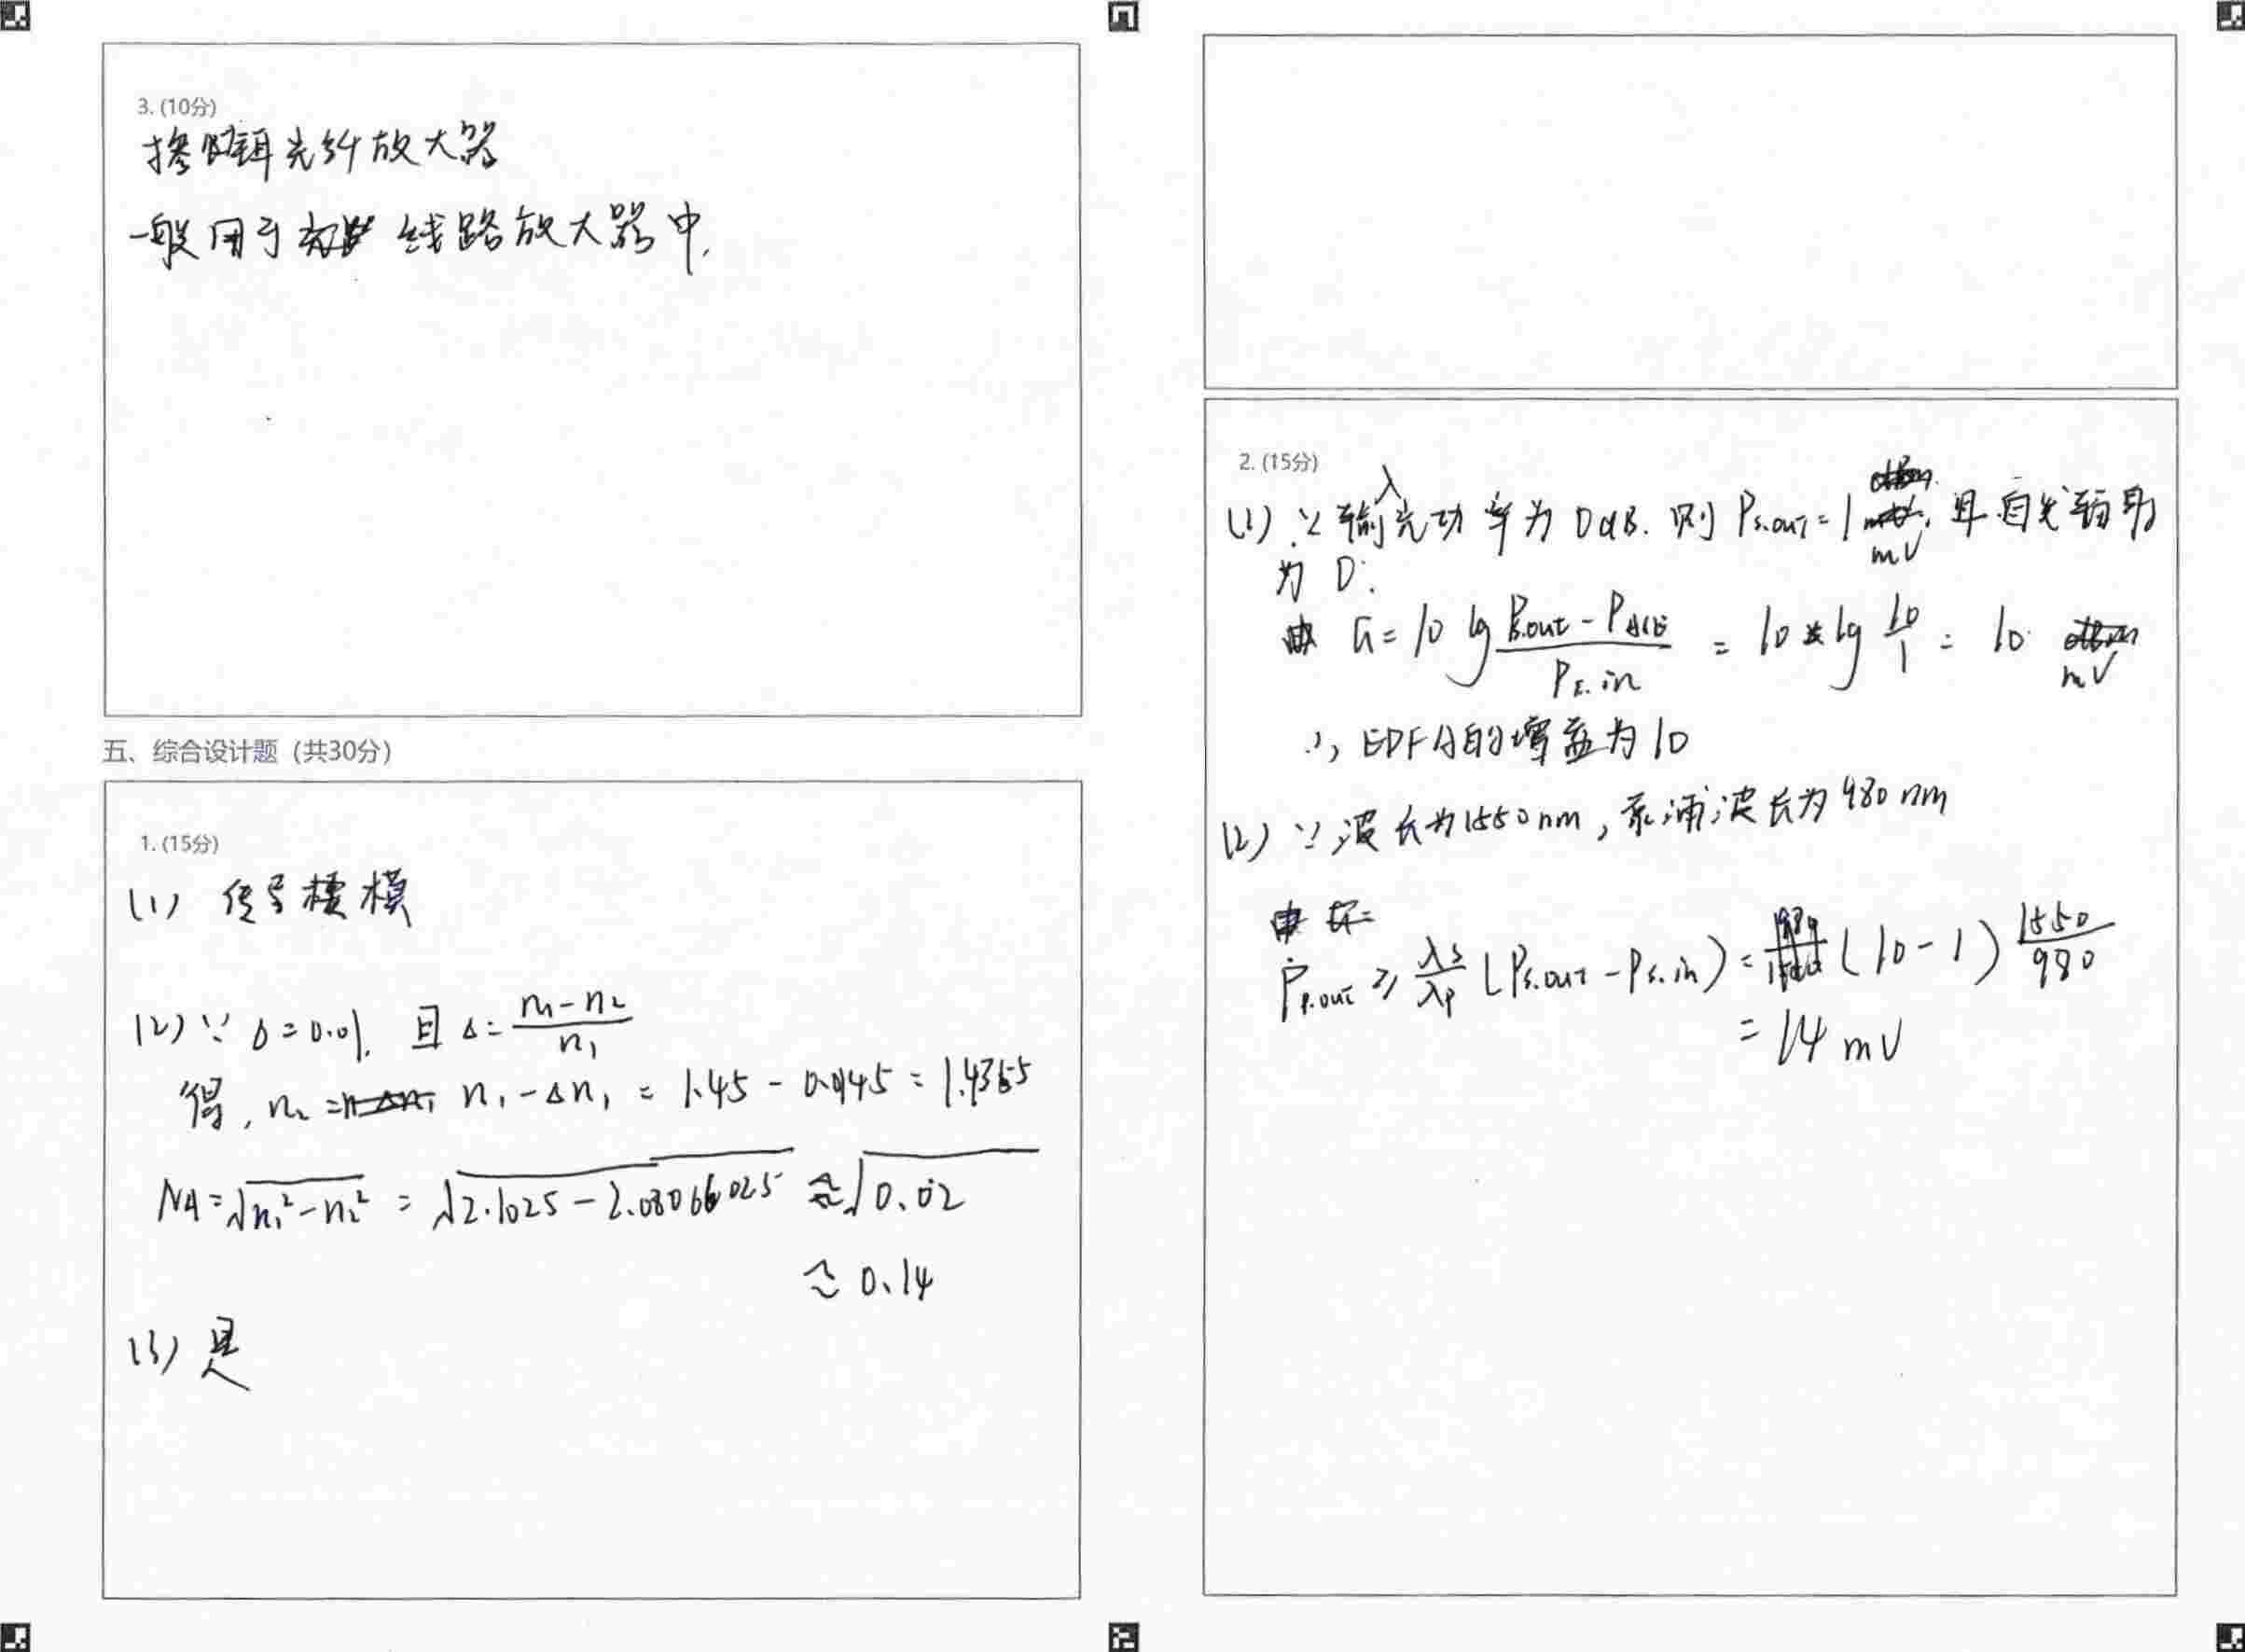 3. (10分)
掺铒光纤放大器
一般用于 线路放大器中.
五、综合设计题（共30分）
1. (15分)
(1) 传导模
(2) ∵ Δ=0.01. 且 Δ= (n₁-n₂)/n₁
得, n₂ = n₁-Δn₁ = 1.45 - 0.0145 = 1.4355
NA=√(n₁²-n₂²) = √(2.1025-2.08066025) ≈ √0.02
≈ 0.14
(3) 是
2. (15分)
(1) ∵ 输入光功率为 0dB. 则 Ps.out = 1 mV 且自发辐射
为 0.
G = 10 lg (Ps.out - PASE)/Ps.in = 10 × lg 10/1 = 10 mV
∴ EDFA的增益为10
(2) ∵ 波长为1550nm, 泵浦波长为980nm
Pp.out ≥ λs/λp (Ps.out - Ps.in) = (10-1) 1550/980
= 14 mV